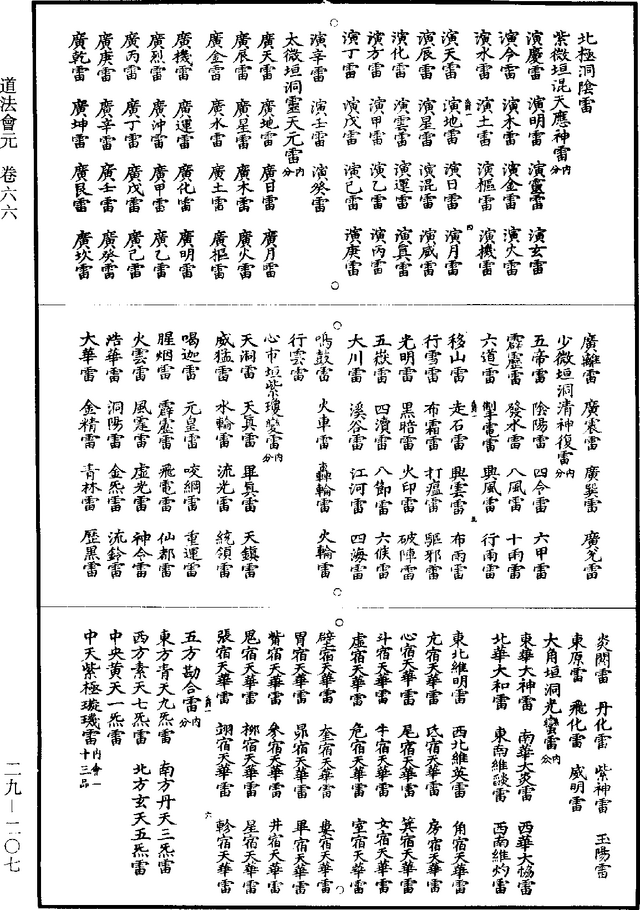 北極洞陰雷
紫微垣混天應神雷內分
演慶雷 演明雷 演靈雷 演玄雷
演令雷 演木雷 演金雷 演火雷
演水雷 演土雷 演樞雷 演機雷
演天雷 演地雷 演日雷 演月雷
演辰雷 演星雷 演混雷 演威雷
演化雷 演雲雷 演運雷 演真雷
演方雷 演甲雷 演乙雷 演丙雷
演丁雷 演戊雷 演己雷 演庚雷
演辛雷 演壬雷 演癸雷
太微垣洞靈天元雷內分
廣天雷 廣地雷 廣日雷 廣月雷
廣辰雷 廣星雷 廣木雷 廣火雷
廣金雷 廣水雷 廣土雷 廣樞雷
廣機雷 廣運雷 廣化雷 廣明雷
廣烈雷 廣沖雷 廣甲雷 廣乙雷
廣丙雷 廣丁雷 廣戊雷 廣己雷
廣庚雷 廣辛雷 廣壬雷 廣癸雷
廣乾雷 廣坤雷 廣艮雷 廣坎雷
廣離雷 廣震雷 廣巽雷 廣兌雷
少微垣洞清神復雷內分
五帝雷 陰陽雷 四令雷 六甲雷
霹靂雷 發水雷 八風雷 十雨雷
六道雷 掣電雷 興風雷 行雨雷
移山雷 走石雷 興雲雷 布雨雷
行雪雷 布霜雷 打瘟雷 驅邪雷
光明雷 黑暗雷 火印雷 破陣雷
五嶽雷 四瀆雷 八節雷 六候雷
大川雷 溪谷雷 江河雷 四海雷
鳴鼓雷 火車雷 轟輪雷 火輪雷
行雲雷
心市垣紫瓊變雷內分
天洞雷 天真雷 畢真雷 天鎮雷
威猛雷 水輪雷 流光雷 統領雷
喝迦雷 元皇雷 咬綱雷 重運雷
腥烟雷 霹靂雷 飛電雷 仙都雷
火雲雷 風霆雷 虛光雷 神令雷
浩華雷 洞陽雷 金炁雷 流鈴雷
大華雷 金精雷 青林雷 歷黑雷
炎閞雷 丹化雷 紫神雷 玉陽雷
東原雷 飛化雷 威明雷
大角垣洞光蠻雷內分
東華大神雷 南華大炎雷 西華大惱雷
北華大和雷 東南維談雷 西南維灼雷
東北維明雷 西北維英雷 角宿天華雷
亢宿天華雷 氐宿天華雷 房宿天華雷
心宿天華雷 尾宿天華雷 箕宿天華雷
斗宿天華雷 牛宿天華雷 女宿天華雷
虛宿天華雷 危宿天華雷 室宿天華雷
壁宿天華雷 奎宿天華雷 婁宿天華雷
胃宿天華雷 昴宿天華雷 畢宿天華雷
觜宿天華雷 參宿天華雷 井宿天華雷
鬼宿天華雷 柳宿天華雷 星宿天華雷
張宿天華雷 翊宿天華雷 軫宿天華雷
五方勘合雷內分
東方青天九炁雷 南方丹天三炁雷
西方素天七炁雷 北方玄天五炁雷
中央黃天一炁雷
中天紫極璇璣雷內會一十三品
道法會元 卷六六
二九—二〇七